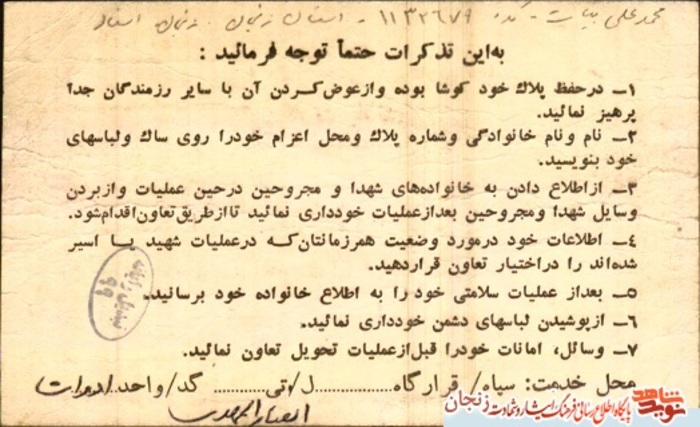 محمدعلی بیات - کد: ۱۱۳۲۶۷۹ - استان زنجان - زنجان
به‌این تذکرات حتماً توجه فرمائید :
۱ــ درحفظ پلاك خود کوشا بوده وازعوض‌کـردن آن با سایر رزمندگان جدا
پرهیز نمائید.
۲ــ نام ونام خانوادگی وشماره پلاك ومحل اعزام خودرا روی ساك ولباسهای
خود بنویسید.
۳ــ ازاطلاع دادن به خانواده‌های شهدا و مجروحین درحین عملیات وازبردن
وسایل شهدا ومجروحین بعدازعملیات خودداری نمائید تاازطریق‌تعاون‌اقدام‌شود.
٤ــ اطلاعات خود درمورد وضعیت همرزمانتان‌که درعملیات شهید یـا اسیر
شده‌اند را دراختیار تعاون قراردهید.
٥ــ بعداز عملیات سلامتی خودرا به اطلاع خانواده خود برسانید.
٦ــ ازپوشیدن لباسهای دشمن خودداری نمائید.
۷ــ وسائل، امانات خودرا قبل‌ازعملیات تحویل تعاون نمائید.
محل خدمت: سپاه/ قرارگاه................ل/تی...........گد/واحد ادوات
انصارالمهدی
نوید شاهد
پایگاه اطلاع رسانی فرهنگ ایثار و شهادت زنجان